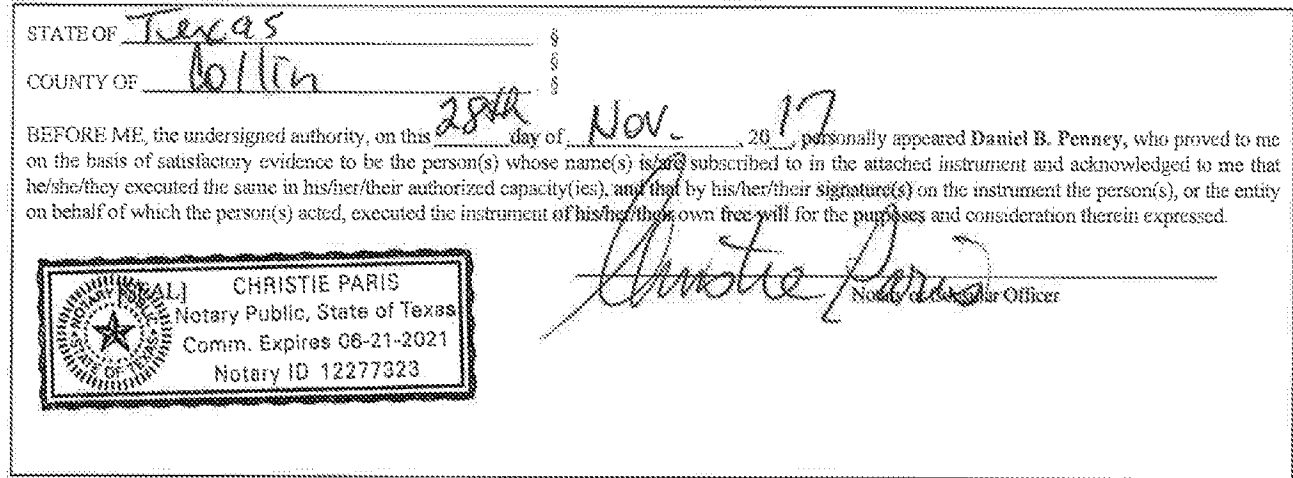 STATE OF Texas §
§
COUNTY OF Collin §
BEFORE ME, the undersigned authority, on this 28th day of Nov. , 20 17 personally appeared Daniel B. Penney, who proved to me
on the basis of satisfactory evidence to be the person(s) whose name(s) is/are subscribed to in the attached instrument and acknowledged to me that
he/she/they executed the same in his/her/their authorized capacity(ies), and that by his/her/their signature(s) on the instrument the person(s), or the entity
on behalf of which the person(s) acted, executed the instrument of his/her/their own free will for the purposes and consideration therein expressed.
Christie Paris
Notary or Consular Officer
[SEAL]
NOTARY PUBLIC
STATE OF TEXAS
CHRISTIE PARIS
Notary Public, State of Texas
Comm. Expires 06-21-2021
Notary ID 12277323